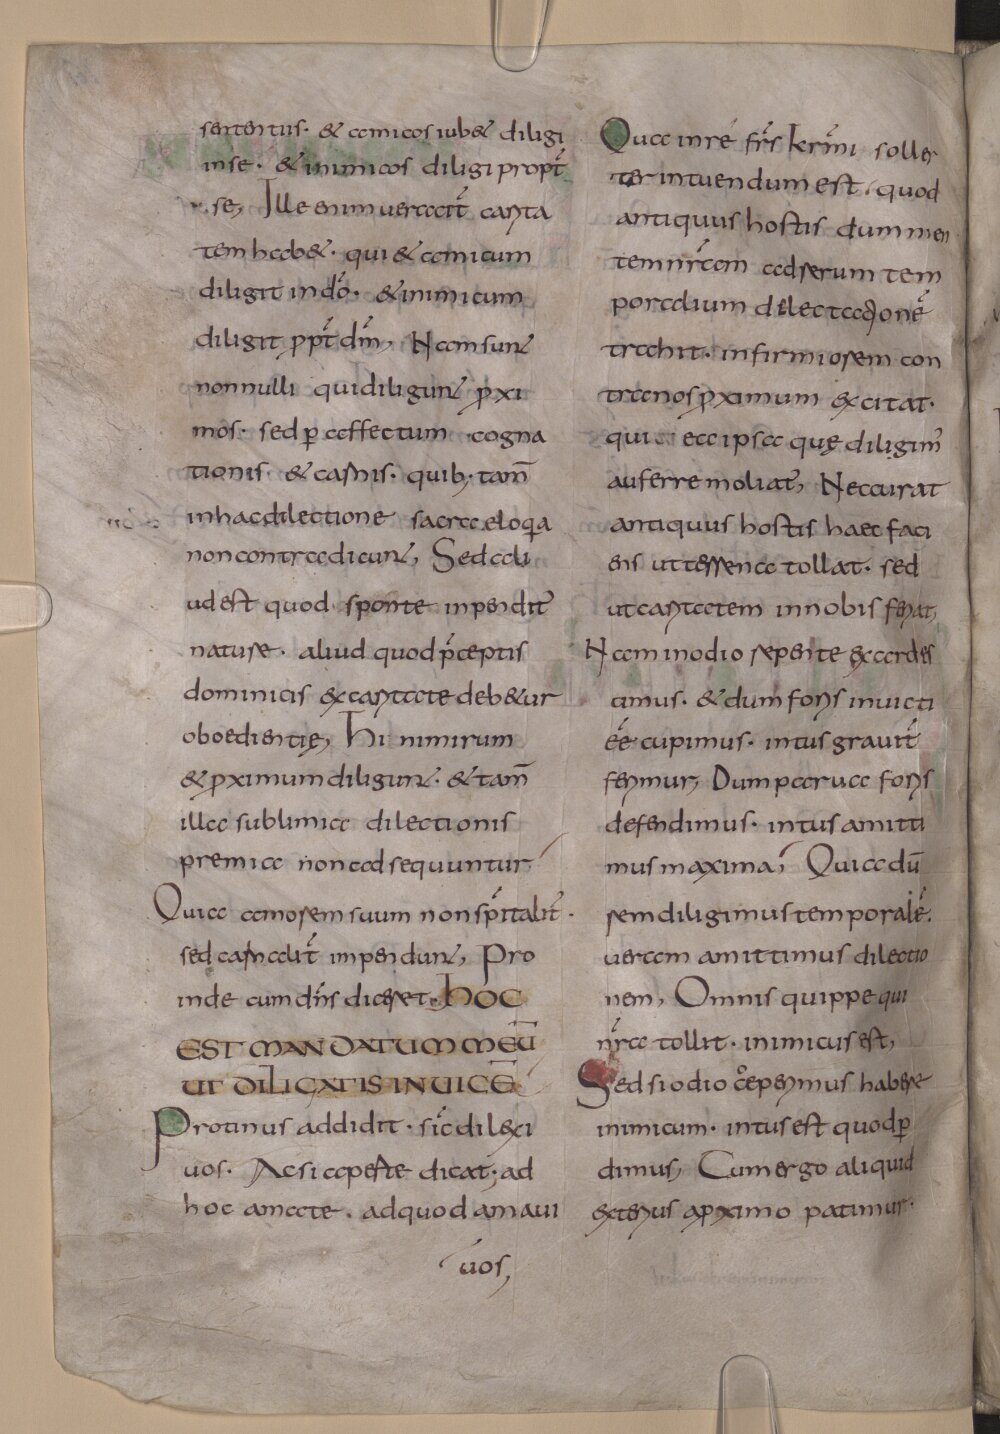 sententiis· & amicos iub& diligi
in se· & inimicos diligi propt̄
se, Ille enim ueracit̄ carita
tem hab&· qui & amicum
diligit in dō· & inimicum
diligit ꝓpt̄ dm̄, Nam sunt
nonnulli qui diligunt ꝓxi
mos· sed p̱ affectum cogna
tionis· & carnis· quib; tam̄
in hac dilectione sacra eloq̱a
non contradicunt, Sed ali
ud est quod sponte inpendit̄
naturę· aliud quod p̄ceptis
dominicis ex caritate deb&ur
oboedientię, Hi nimirum
& ꝓximum diligunt· & tam̄
illa sublimia dilectionis
premia non adsequuntur
Quia amorem suum non sp̄italit̄·
sed carnalit̄ impendunt, Pro
inde cum dn̄s diceret· HOC
EST MANDATUM MEŪ
UT DILIGATIS INUICĒ
Protinus addidit· sic̄ dilexi
uos· Ac si aperte dicat; ad
hoc amate· ad quod amaui
uos,
Qua in re fr̄s kr̄mi soller
ter intuendum est· quod
antiquus hostis dum men
tem nr̄am ad rerum tem
poralium dilectationē
trahit· infirmiorem con
tra nos ꝓximum excitat·
qui ea ipsa quę diligim̄
auferre moliat̄, Nec curat
antiquus hostis haec faci
ens ut terrena tollat· sed
ut caritatem in nobis feriat,
Nam in odio repente exardes
cimus· & dum foris inuicti
eē cupimus· intus grauit̄
ferimur, Dum parua foris
defendimus· intus amitti
mus maxima, Quia dū
rem diligimus temporalē·
ueram amittimus dilectio
nem, Omnis quippe qui
nr̄a tollit· inimicus est,
Sed si odio coeperimus habere
inimicum· intus est quod p̱
dimus, Cum ergo aliquid
exterius a ꝓximo patimur·